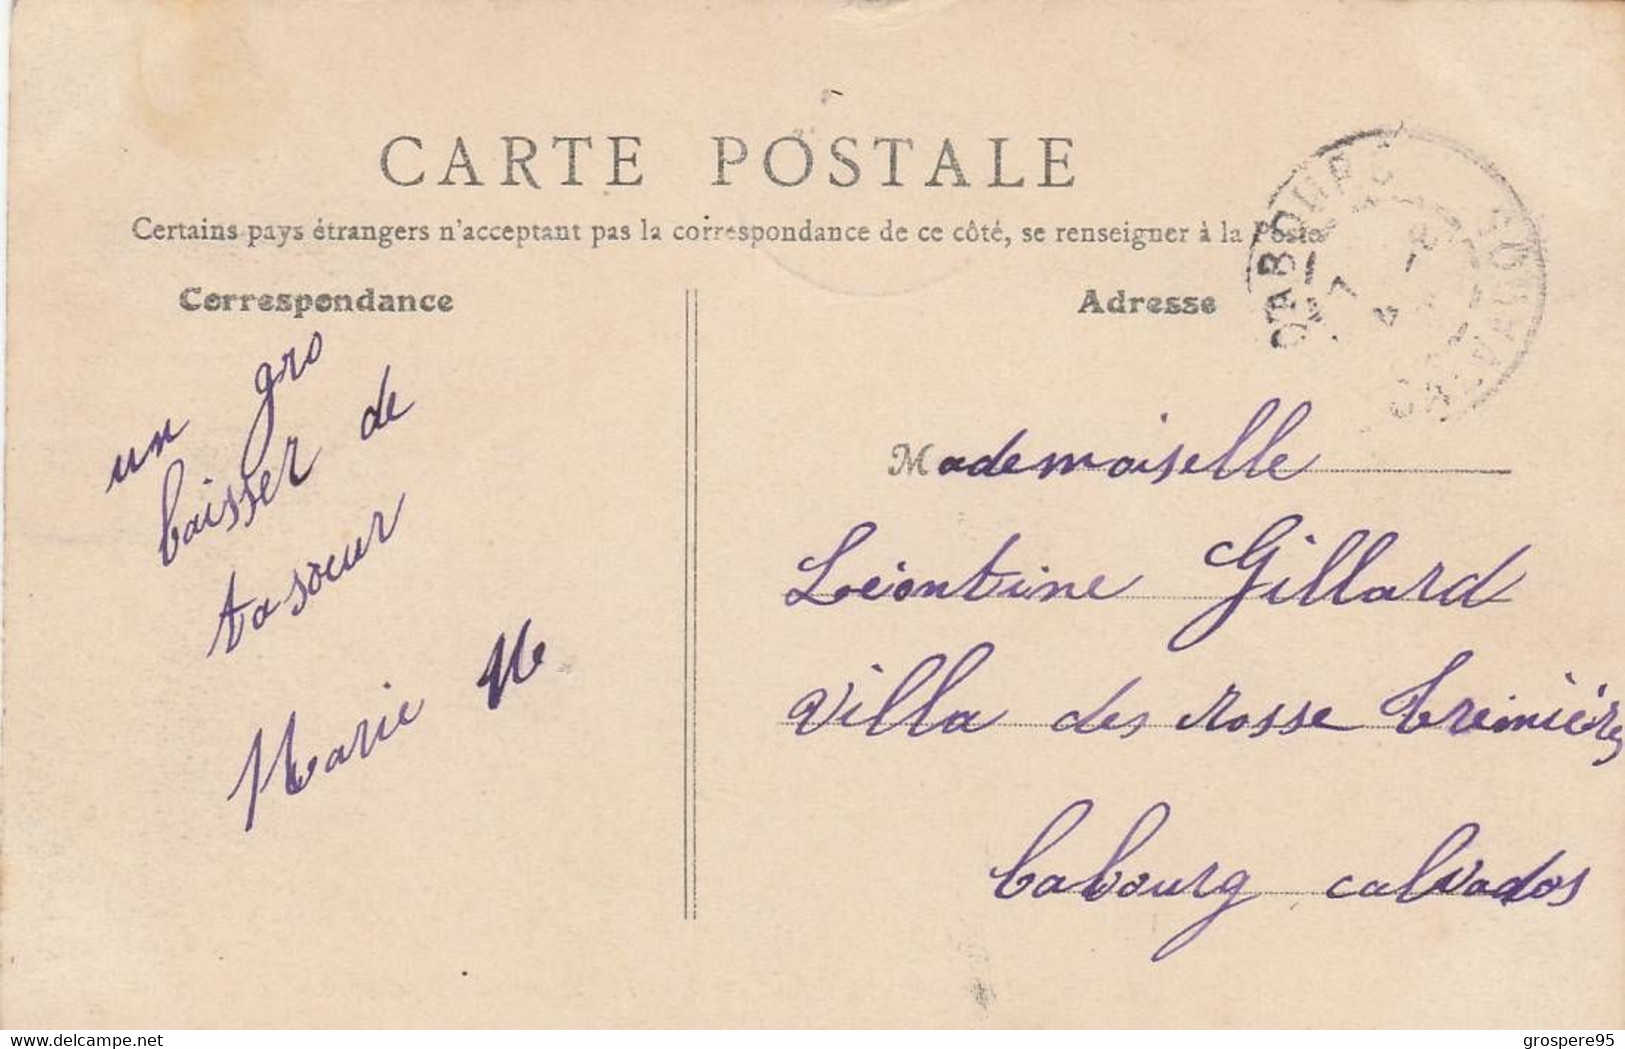 CARTE POSTALE
Certains pays étrangers n'acceptent pas la correspondance de ce côté, se renseigner à la Poste
Correspondance
Adresse
CABOURG
CALVADOS
un gro
baisser de
ta soeur
Marie M
Mademoiselle
Léontine Gillard
Villa des rosse tremières
Cabourg calvados
delcampe.net
grospere95